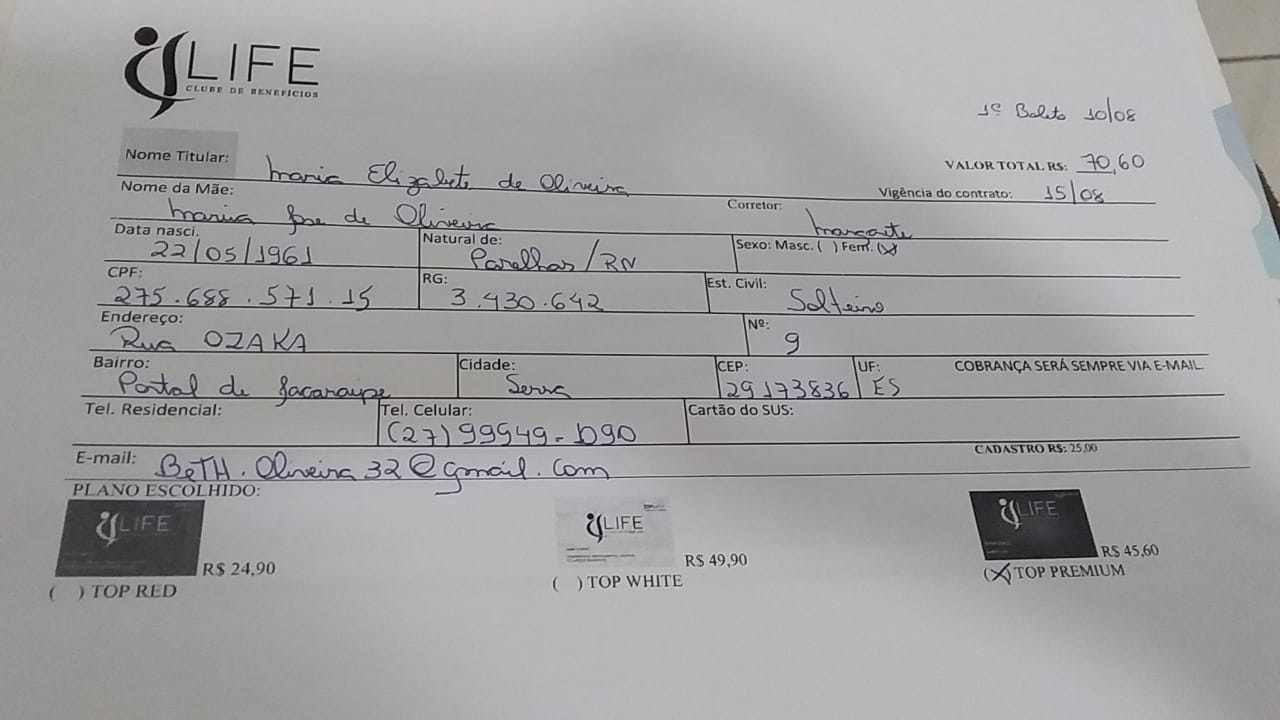 LIFE
CLUBE DE BENEFÍCIOS
1º Boleto 10/08
Nome Titular: Maria Elizabete de Oliveira VALOR TOTAL R$: 70,60
Nome da Mãe: Maria Jose de Oliveira Corretor: Margarete Vigência do contrato: 15/08
Data nasci. 22/05/1961 Natural de: Parelhas/RN Sexo: Masc. ( ) Fem. (X)
CPF: 275.688.571.15 RG: 3.430.642 Est. Civil: Solteiro
Endereço: Rua OZAKA Nº: 9
Bairro: Portal de Jacaraipe Cidade: Serra CEP: 29173836 UF: ES COBRANÇA SERÁ SEMPRE VIA E-MAIL.
Tel. Residencial: Tel. Celular: (27) 99949-1090 Cartão do SUS:
E-mail: BeTH.Oliveira32@gmail.com CADASTRO R$: 25,00
PLANO ESCOLHIDO:
LIFE R$ 24,90 LIFE R$ 49,90 LIFE R$ 45,60
( ) TOP RED ( ) TOP WHITE (X) TOP PREMIUM